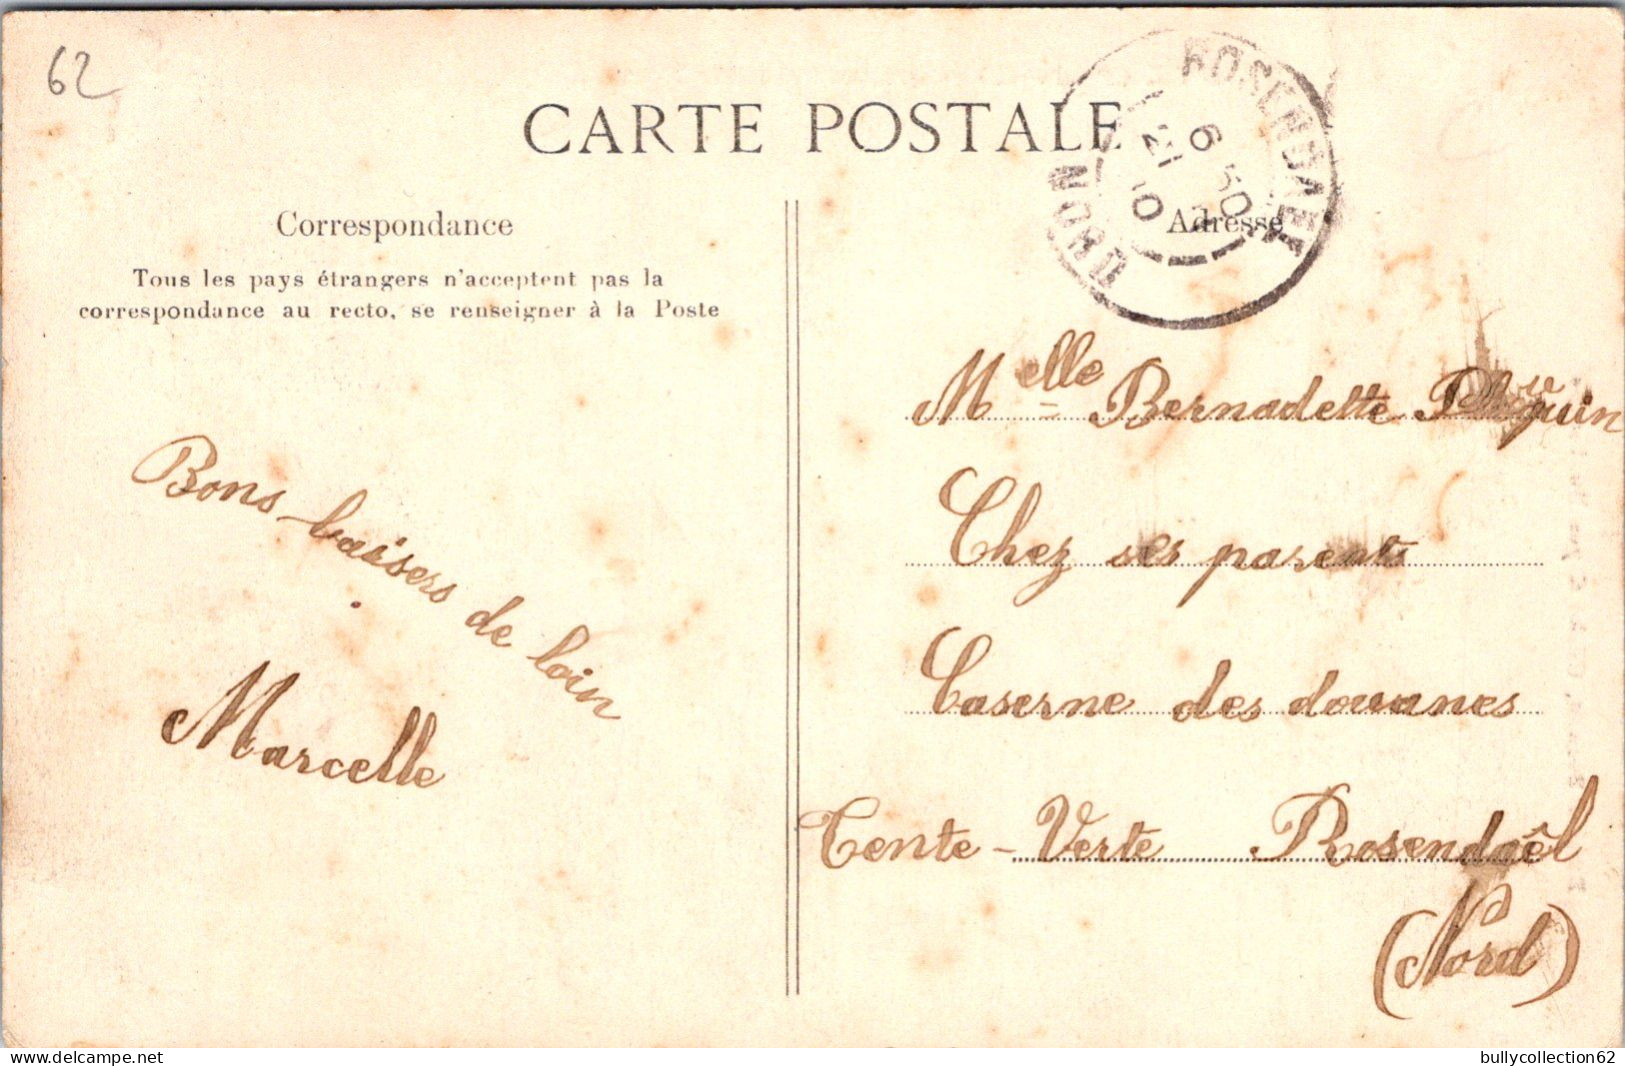 62
CARTE POSTALE
ROSENDAEL
6 50
21
10
NORD
Correspondance
Adresse
Tous les pays étrangers n'acceptent pas la
correspondance au recto, se renseigner à la Poste
Melle Bernadette
Bons baisers de loin
Marcelle
Chez ses parents
Caserne des douanes
Tente-Verte Rosendaël
(Nord)
www.delcampe.net
bullycollection62